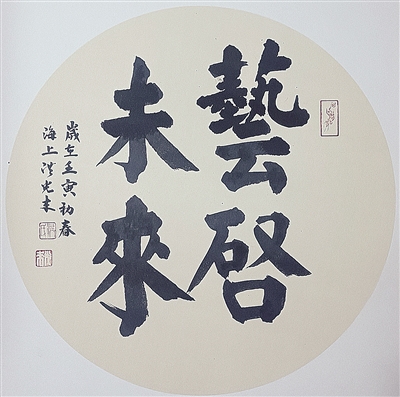 藝啓
未來
歲在壬寅初春
海上洪光来